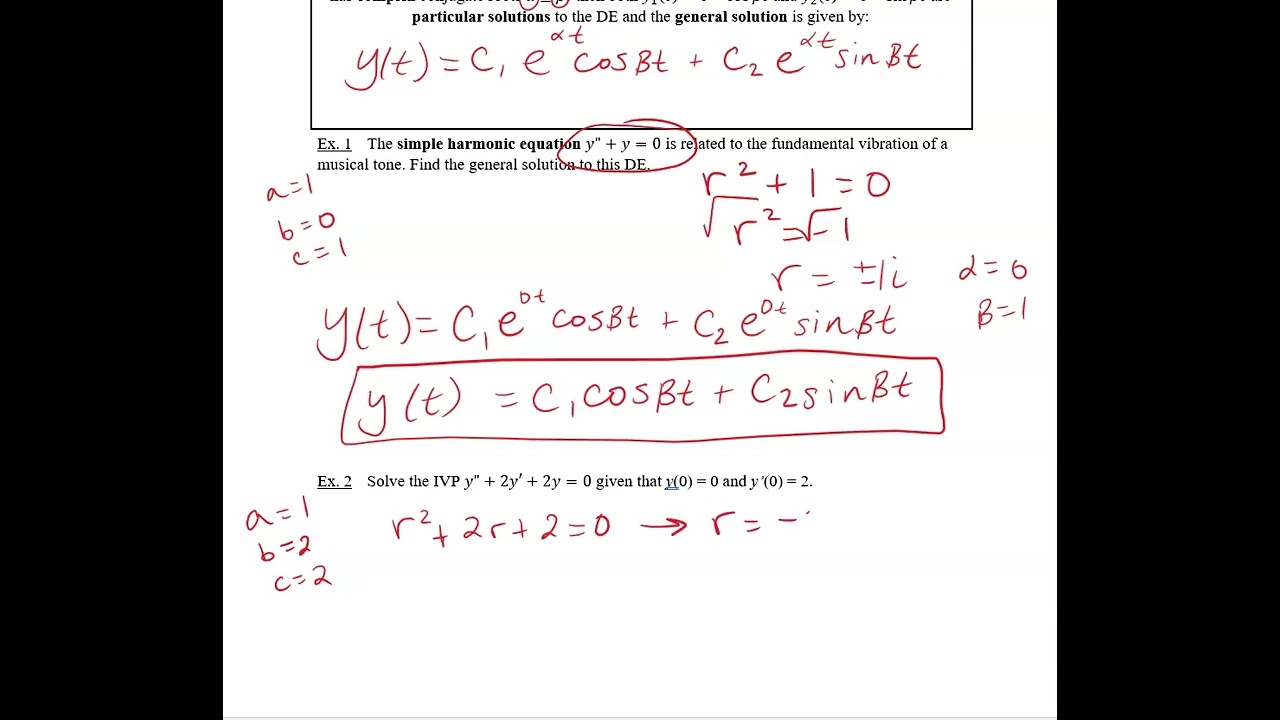 particular solutions to the DE and the general solution is given by:
y(t) = C₁ e^αt cosβt + C₂ e^αt sinβt
Ex. 1 The simple harmonic equation y" + y = 0 is related to the fundamental vibration of a
musical tone. Find the general solution to this DE.
a=1
b=0
c=1
r² + 1 = 0
√r² = √-1
r = ±1i
α=0
β=1
y(t) = C₁e^0t cosβt + C₂e^0t sinβt
y(t) = C₁cosβt + C₂sinβt
Ex. 2 Solve the IVP y" + 2y′ + 2y = 0 given that y(0) = 0 and y′(0) = 2.
a=1
b=2
c=2
r² + 2r + 2 = 0 → r = -